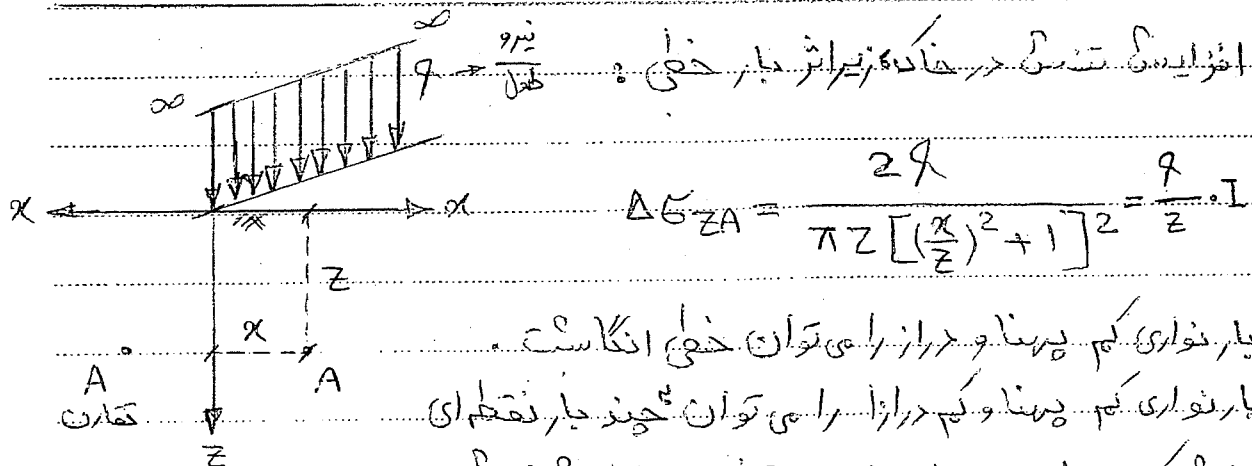 افزایش تنش در خاک، زیر اثر بار خطی :
∞ ∞
q → نیرو / طول
x x
Δσ_ZA = 2q / πz[(x/z)² + 1]² = q/z · I
z
x
A A
تقارن
z
بار نواری کم پهنا و دراز را می توان خطی انگاشت .
بار نواری کم پهنا و کم درازا را می توان چند بار نقطه ای